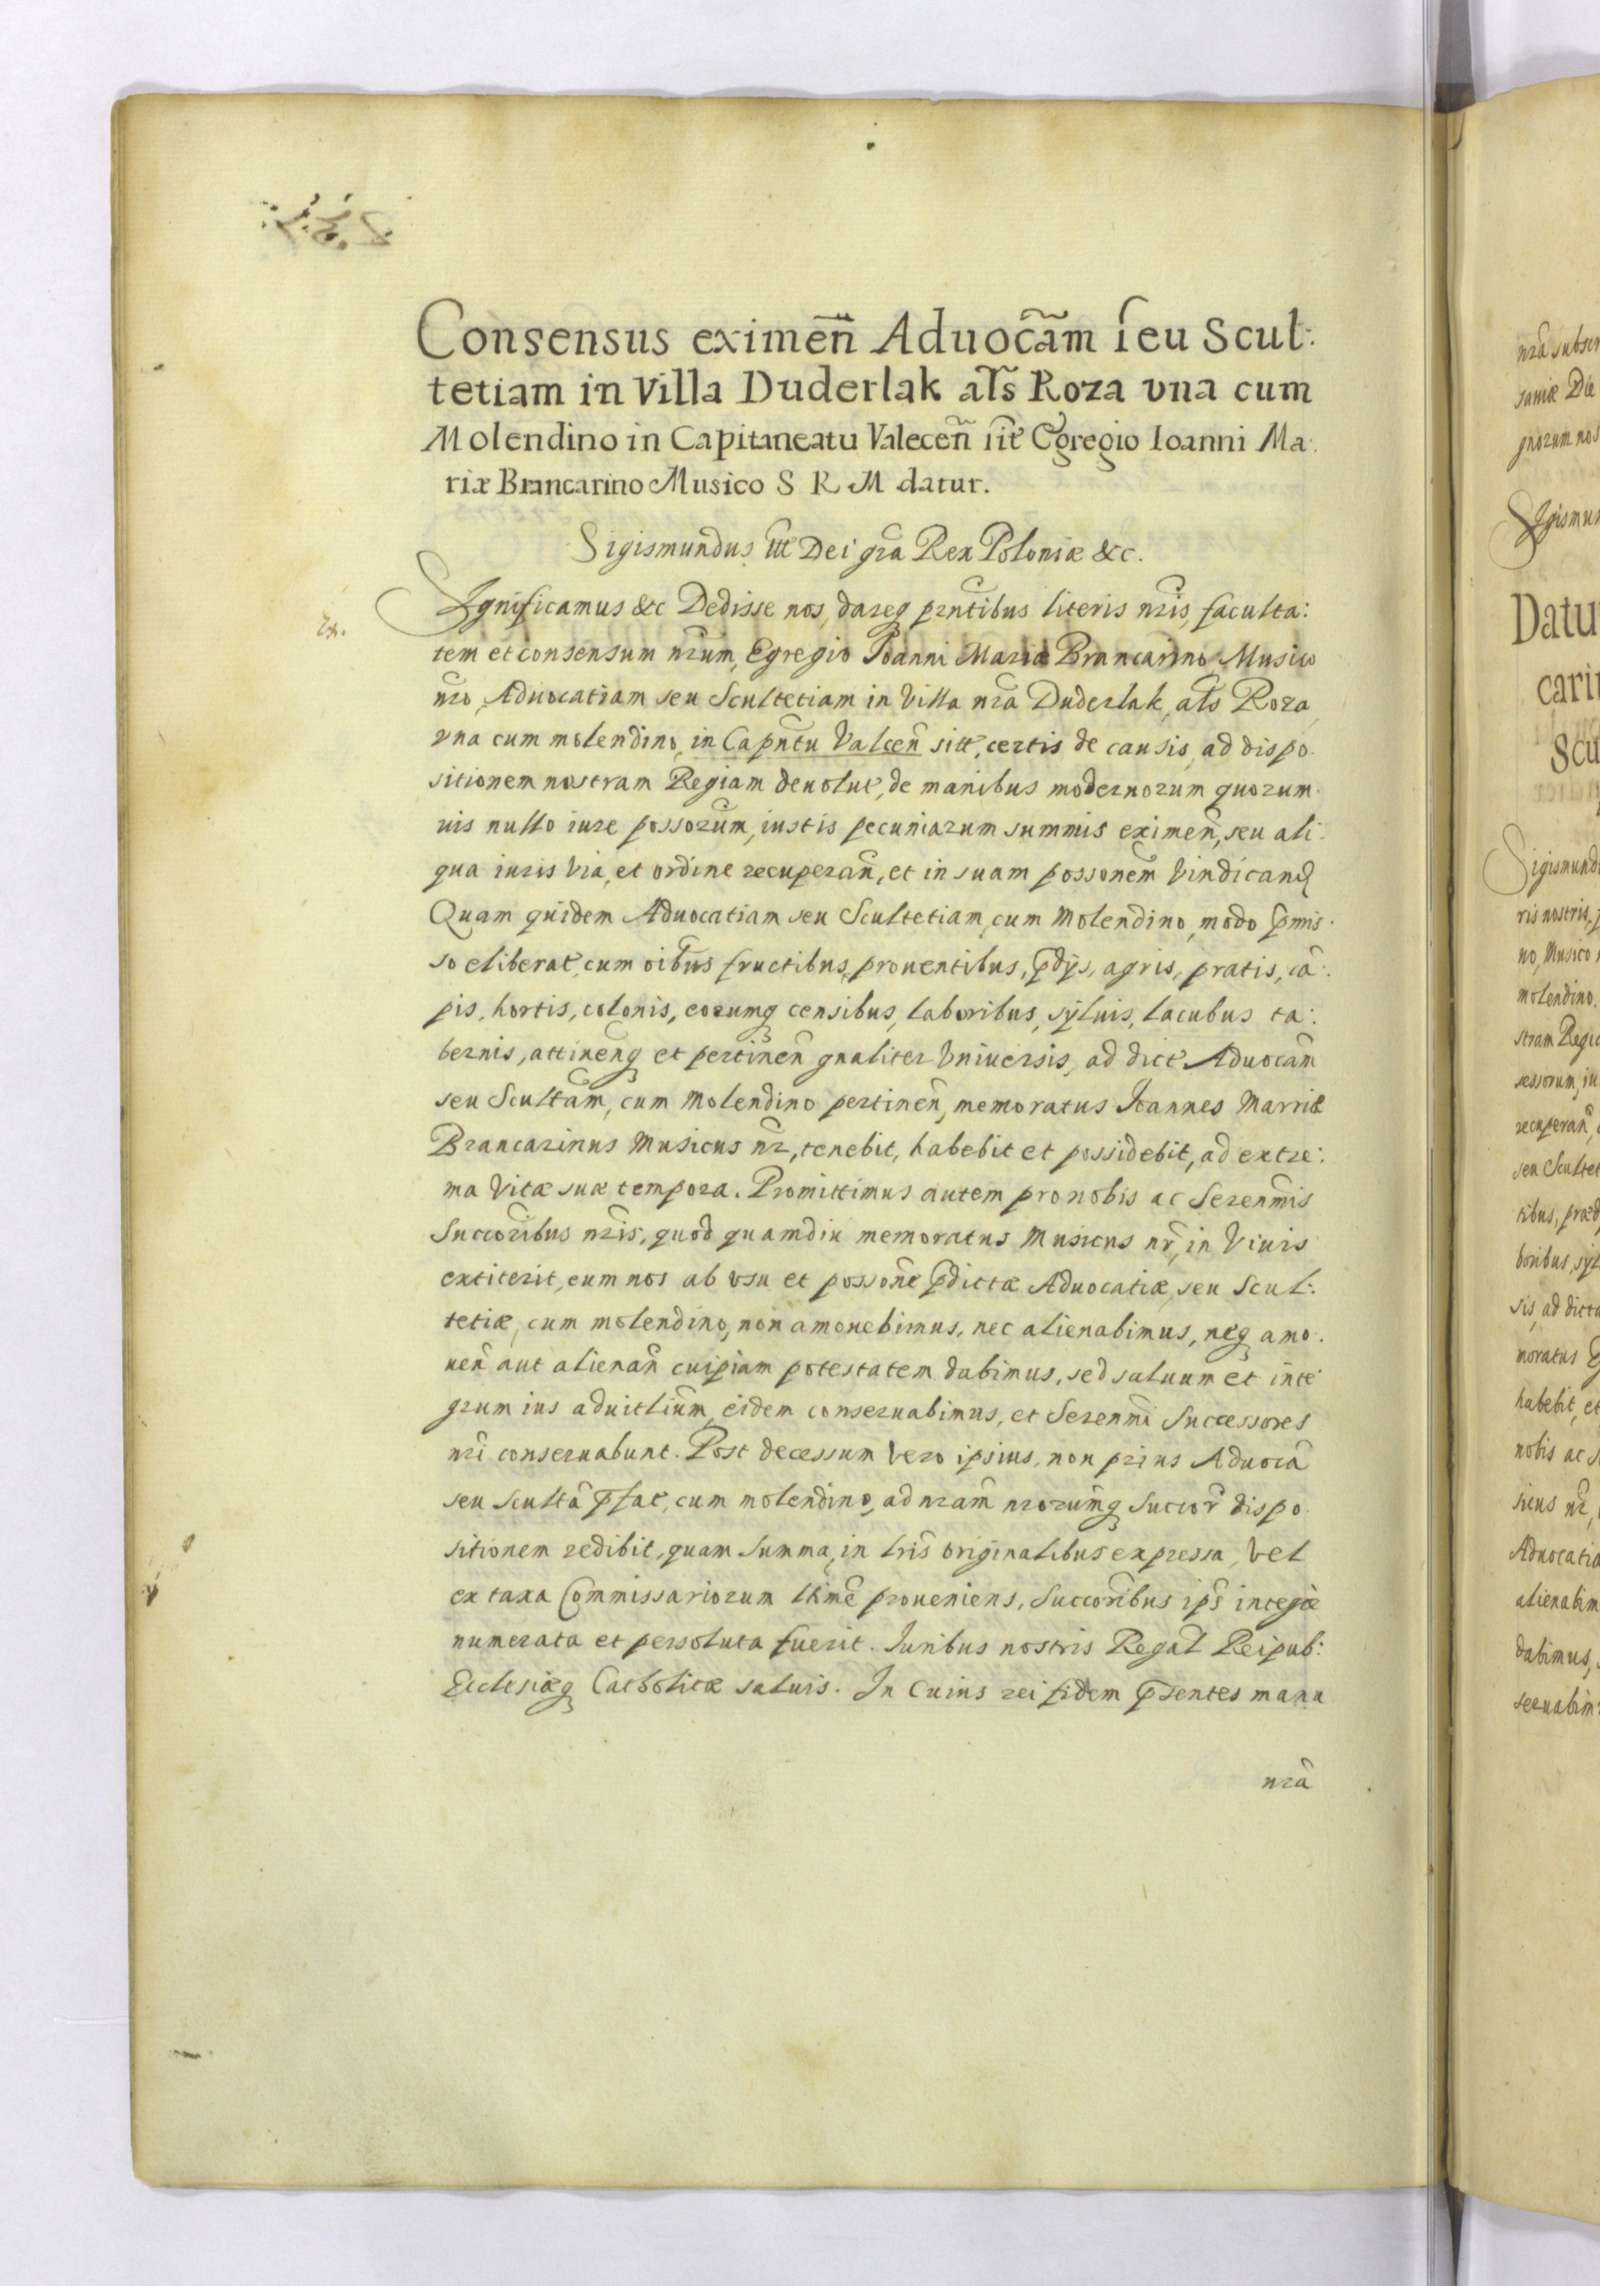 Consensus eximeñ Aduocãm seu Scul:
tetiam in Villa Duderlak als Roza vna cum
Molendino in Capitaneatu Valeceñ sit Egregio Ioanni Ma:
riæ Brancarino Musico S R M datur.
Sigismundus III Dei gra Rex Poloniæ &c.
Significamus &c Dedisse nos, dareq prntibus literis nris, faculta:
tem et consensum nrum, Egregio Ioanni Mariæ Brancarino Musico
nro, Aduocatiam seu Scultetiam in Villa nra Duderlak, als Roza,
vna cum molendino, in Capntu Valceñ sitt, certis de causis, ad dispo.
sitionem nostram Regiam deuolut, de manibus modernorum quorum.
uis nullo iure possorum, iustis pecuniarum summis eximeñ, seu ali:
qua iuris via, et ordine recuperañ, et in suam possonem Vindicand
Quam quidem Aduocatiam seu Scultetiam, cum Molendino, modo pmis.
so eliberat, cum oibus fructibus, prouentibus, pdijs, agris, pratis, cã:
pis, hortis, colonis, eorumq censibus, laboribus, syluis, lacubus ta:
bernis, attinenq et pertineñ gnaliter Vniuersis, ad dict Aduocãm
seu Scultãm, cum Molendino pertineñ, memoratus Ioannes Marriæ
Brancarinus Musicus nr, tenebit, habebit et possidebit, ad extre:
ma Vitæ suæ tempora. Promittimus autem pro nobis ac Serenmis
Succoribus nris, quod quamdiu memoratus Musicus nr, in Viuis
extiterit, eum nos ab vsu et possone pdictæ Aduocatiæ, seu Scul:
tetiæ, cum molendino, non amouebimus, nec alienabimus, neq amo.
ueñ aut alienañ cuipiam potestatem dabimus, sed saluum et inte
grum ius aduitlium, eidem conseruabimus, et Serenmi Successores
nri conseruabunt. Post decessum Vero ipsius, non prius Aduocã
seu Scultã pfat, cum molendino, ad nram nrorumq Succor dispo.
sitionem redibit, quam Summa, in lris originalibus expressa, Vel
ex taxa Commissariorum ltime proueniens, Succoribus ips integre
numerata et persoluta fuerit. Iuribus nostris Regal Reipub:
Ecclesiæq Catholicæ saluis. In Cuius rei fidem psentes manu
nra
nra subscr
Datu
carin
Scu
ris nostris, p
no, Musico
molendino.
stram Regia
recuperañ,
seu Scultet
sis, ad dicta
moratus
habebit, et
nobis ac s
sicus nr,
Aduocatia
alienabim
dabimus,
seruabim